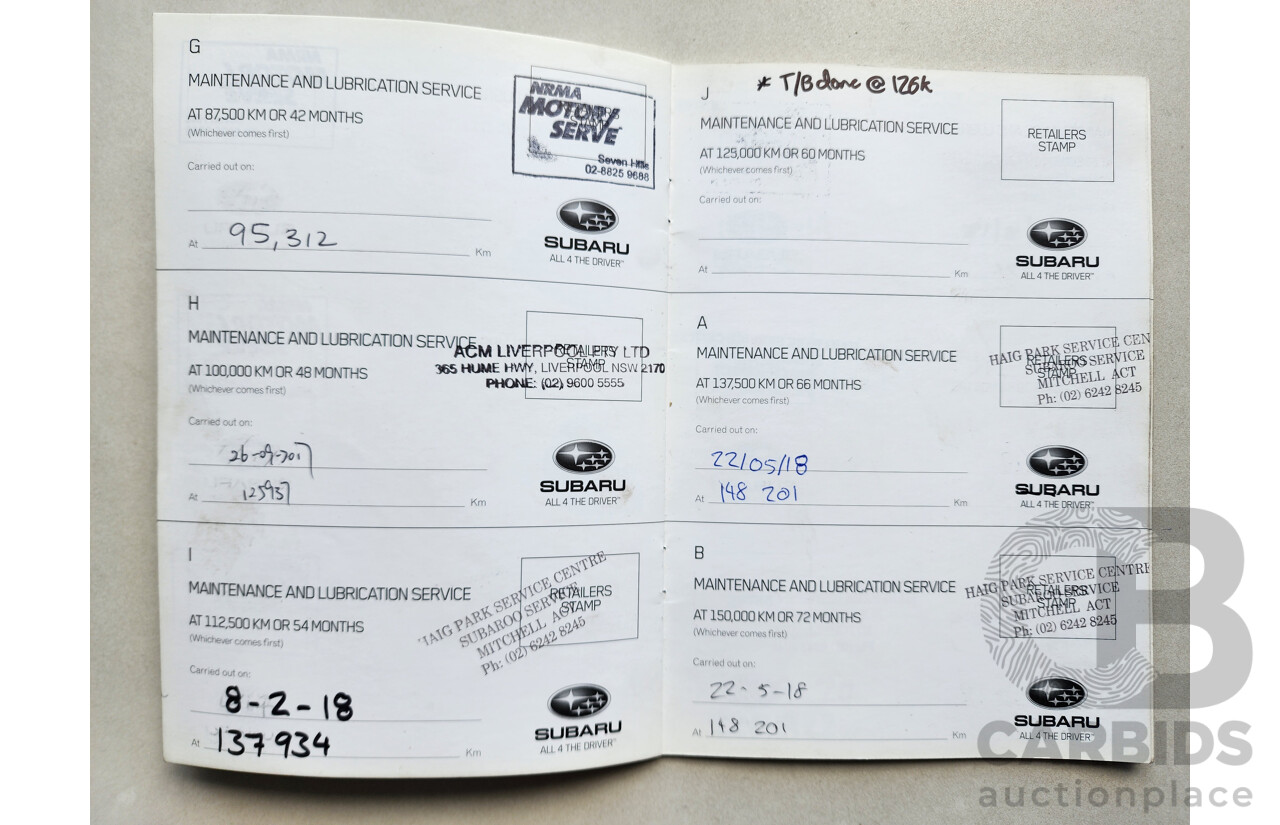 G
MAINTENANCE AND LUBRICATION SERVICE
AT 87,500 KM OR 42 MONTHS
(Whichever comes first)
Carried out on:
At 95,312 Km
NRMA
MOTOR
SERVE
Seven Hills
02-8825 9688
SUBARU
ALL 4 THE DRIVER™
H
MAINTENANCE AND LUBRICATION SERVICE
AT 100,000 KM OR 48 MONTHS
(Whichever comes first)
Carried out on:
26-09-2017
At 125937 Km
RETAILERS
STAMP
ACM LIVERPOOL PTY LTD
365 HUME HWY, LIVERPOOL NSW 2170
PHONE: (02) 9600 5555
SUBARU
ALL 4 THE DRIVER™
I
MAINTENANCE AND LUBRICATION SERVICE
AT 112,500 KM OR 54 MONTHS
(Whichever comes first)
Carried out on:
8-2-18
At 137934 Km
RETAILERS
STAMP
HAIG PARK SERVICE CENTRE
SUBAROO SERVICE
MITCHELL ACT
Ph: (02) 6242 8245
SUBARU
ALL 4 THE DRIVER™
* T/B done @ 126k
J
MAINTENANCE AND LUBRICATION SERVICE
AT 125,000 KM OR 60 MONTHS
(Whichever comes first)
Carried out on:
At Km
RETAILERS
STAMP
SUBARU
ALL 4 THE DRIVER™
A
MAINTENANCE AND LUBRICATION SERVICE
AT 137,500 KM OR 66 MONTHS
(Whichever comes first)
Carried out on:
22/05/18
At 148 201 Km
RETAILERS
STAMP
HAIG PARK SERVICE CEN
SERVICE
MITCHELL ACT
Ph: (02) 6242 8245
SUBARU
ALL 4 THE DRIVER™
B
MAINTENANCE AND LUBRICATION SERVICE
AT 150,000 KM OR 72 MONTHS
(Whichever comes first)
Carried out on:
22-5-18
At 148 201 Km
RETAILERS
STAMP
HAIG PARK SERVICE CENTRE
SUBAROO SERVICE
MITCHELL ACT
Ph: (02) 6242 8245
SUBARU
ALL 4 THE DRIVER™
CARBIDS
auctionplace